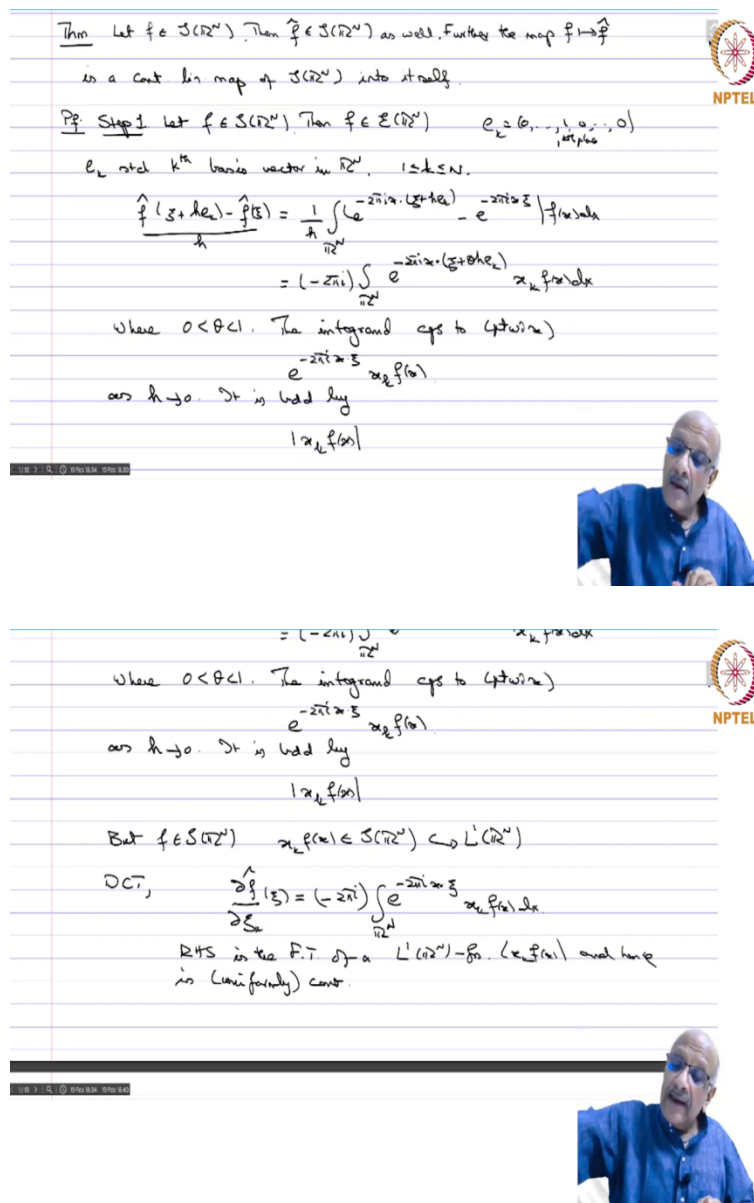 Thm Let f ∈ S(ℝᴺ). Then f̂ ∈ S(ℝᴺ) as well. Further the map f ↦ f̂
is a cont lin map of S(ℝᴺ) into itself.
NPTEL
Pf: Step 1 Let f ∈ S(ℝᴺ). Then f ∈ ℰ(ℝᴺ) e_k = (0, ..., 1, 0, .., 0)
e_k std kᵗʰ basis vector in ℝᴺ, 1 ≤ k ≤ N.
(f̂(ξ+he_k) - f̂(ξ))/h = 1/h ∫_{ℝᴺ} (e^{-2πix·(ξ+he_k)} - e^{-2πix·ξ}) f(x)dx
= (-2πi) ∫_{ℝᴺ} e^{-2πix·(ξ+θhe_k)} x_k f(x)dx
where 0<θ<1. The integrand cgs to (ptwise)
e^{-2πix·ξ} x_k f(x)
as h→0. It is bdd by
|x_k f(x)|
= (-2πi) ∫_{ℝᴺ} x_k f(x)dx
where 0<θ<1. The integrand cgs to (ptwise)
NPTEL
e^{-2πix·ξ} x_k f(x)
as h→0. It is bdd by
|x_k f(x)|
But f ∈ S(ℝᴺ) x_k f(x) ∈ S(ℝᴺ) ↪ L¹(ℝᴺ)
DCT, ∂f̂/∂ξ_k (ξ) = (-2πi) ∫_{ℝᴺ} e^{-2πix·ξ} x_k f(x)dx
RHS is the F.T. of a L¹(ℝᴺ)-fn. (x_k f(x)) and hence
is (uniformly) cont.